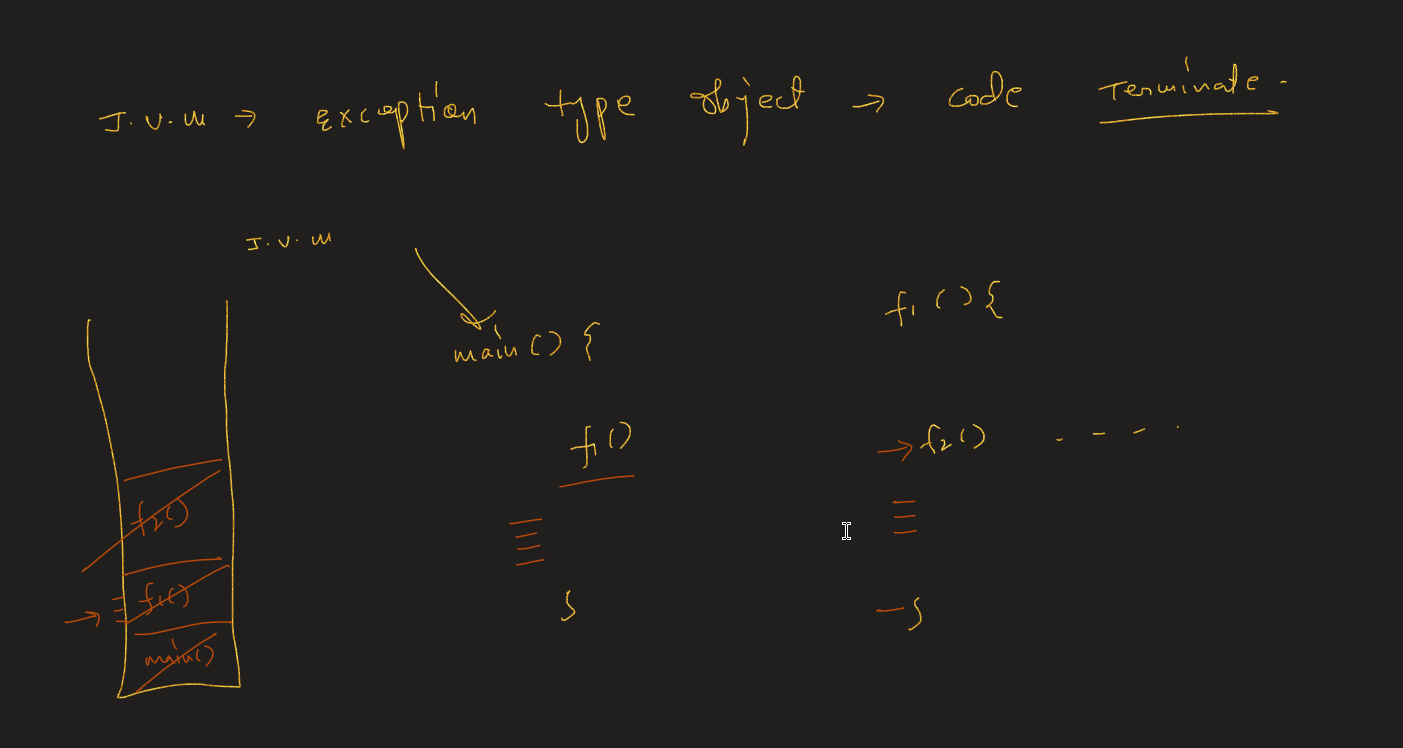 J.V.M → exception type object → code Terminate.
J.V.M
main() {
f1() {
f1()
→ f2() - - - .
}
}
f2()
→ f1()
main()